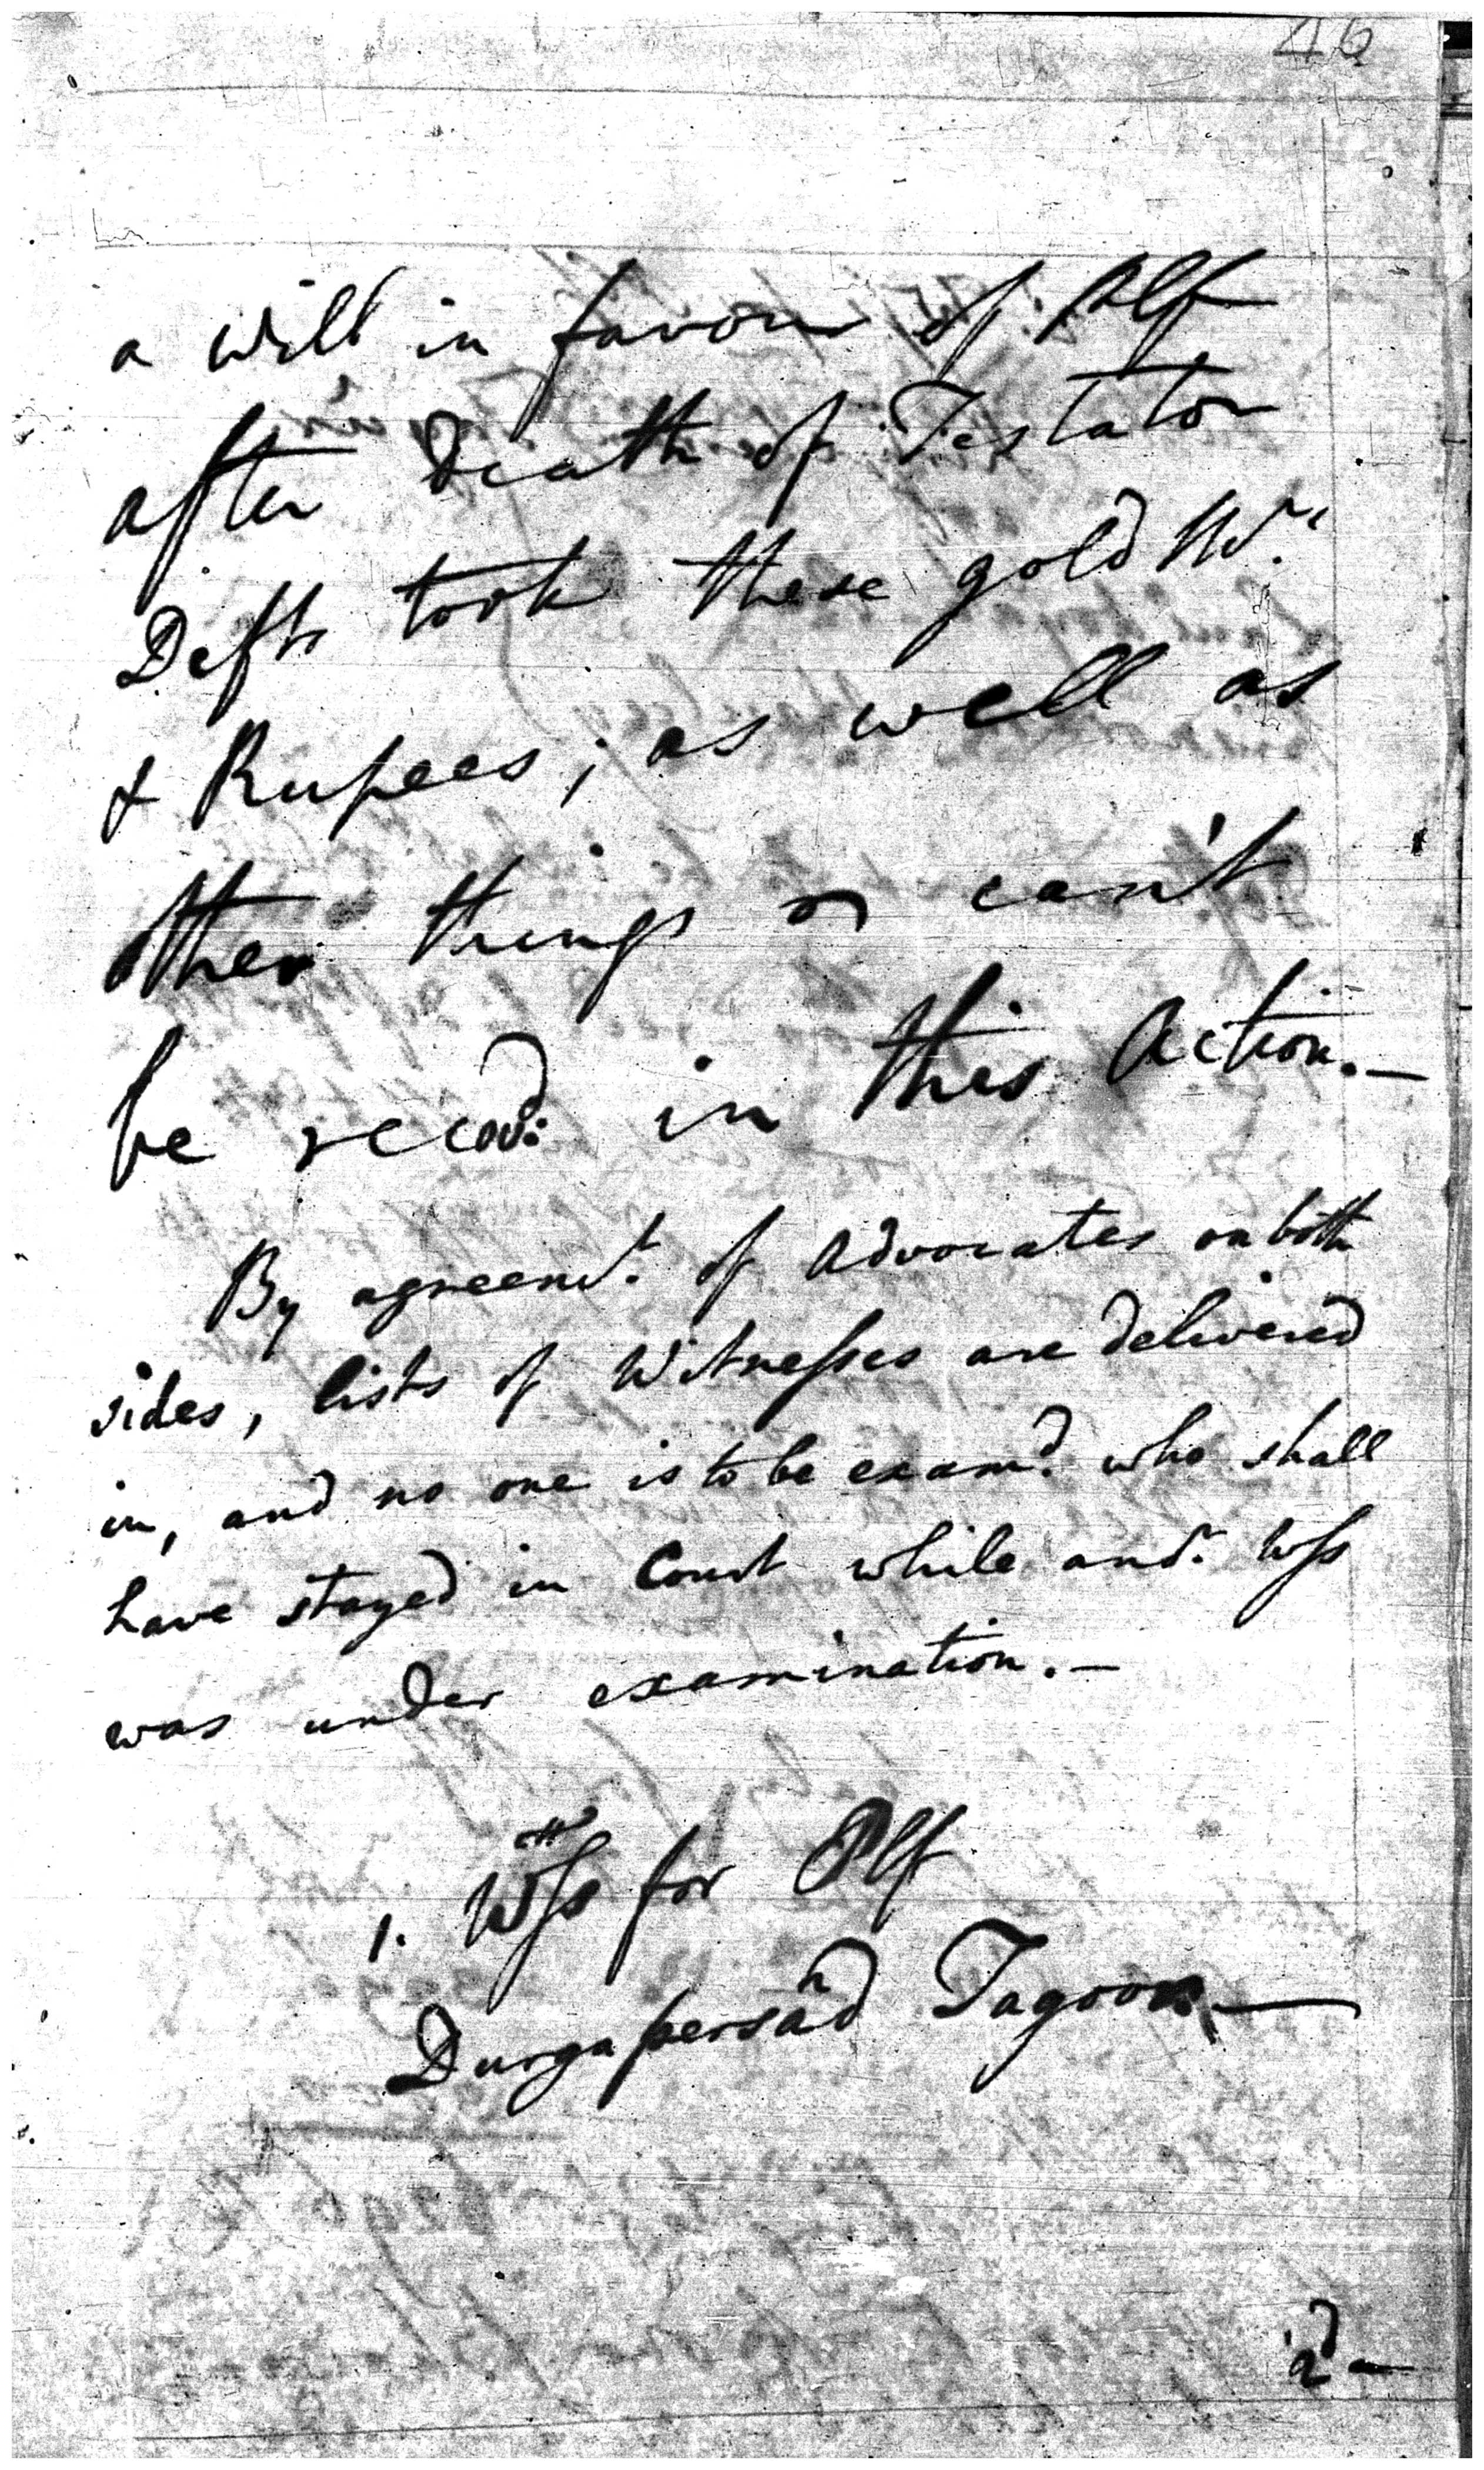 46
a will in favour of Plf
after death of Testator
Defts took these gold Mrs
& Rupees; as well as
other things & can't
be recovd: in this Action.—
By agreemt. of Advocates on both
sides, lists of Witnesses are delivered
in, and no one is to be examd. who shall
have stayed in Court while anr. Wss
was under examination.—
1. Wss for Plf
Durgapersâd Tagoor—
2d—